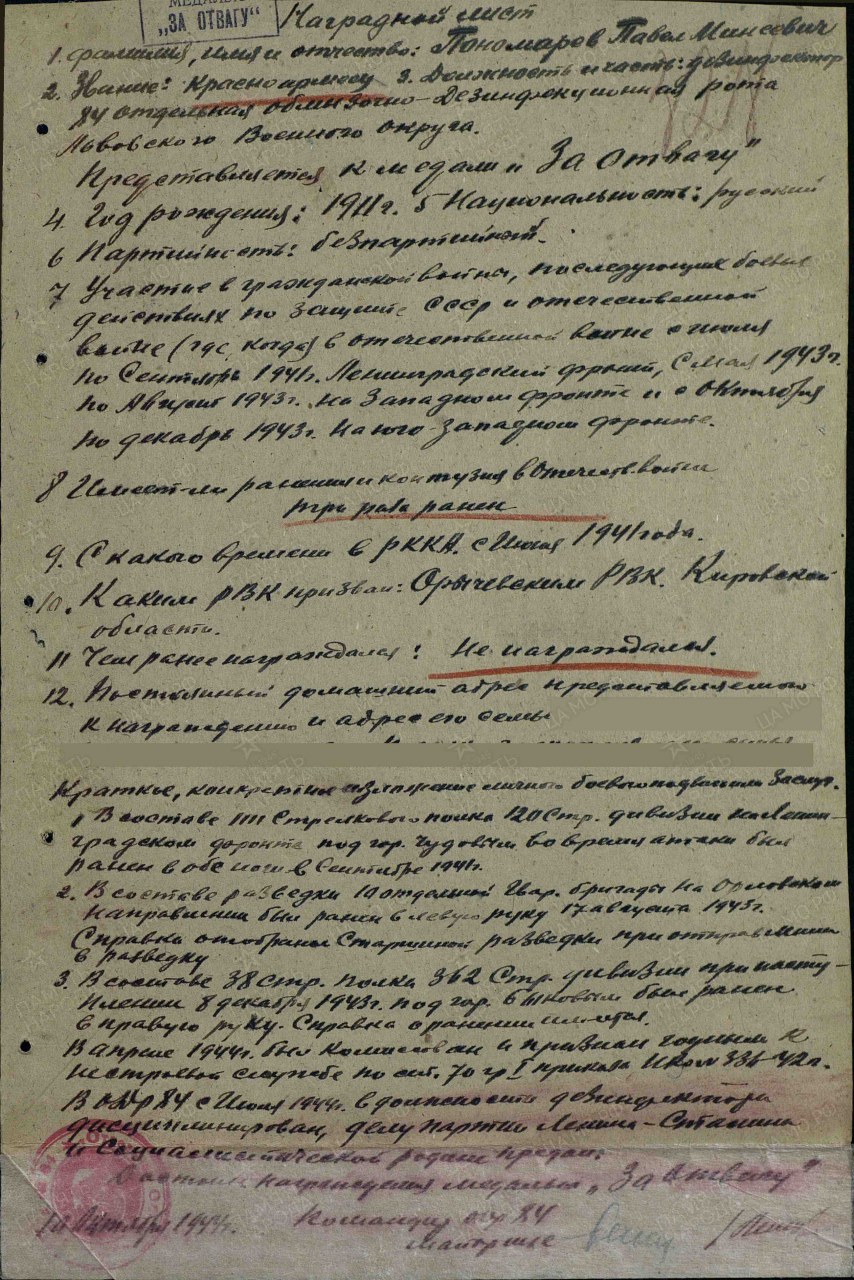 МЕДАЛЬЮ
„ЗА ОТВАГУ"
Наградной лист
1. Фамилия, имя и отчество: Пономарев Павел Моисеевич
2. Звание: Красноармеец 3. Должность и часть: дезинфектор
84 отдельная обмывочно-Дезинфекционная рота
Львовского Военного округа.
Представляется к медали „За отвагу"
4. Год рождения: 1911 г. 5 Национальность: русский
6 Партийность: безпартийный.
7 Участие в гражданской войне, последующих боевых
действиях по защите СССР и отечественной
войне (где, когда) в отечественной войне с июля
по Сентябрь 1941г. Ленинградский фронт, с мая 1943 г.
по Август 1943г. на Западном фронте и с Октября
по декабрь 1943г. На юго-Западном фронте.
8 Имеет-ли ранения и контузия в Отечеств. войне
три раза ранен
9. С какого времени в РККА. с Июля 1941 года.
10. Каким РВК призван: Оричевским РВК. Кировской
области.
11 Чем ранее награждался: Не награждался.
12. Постоянный домашний адрес представляемого
к награждению и адрес его семьи
Краткое, конкретное изложение личного боевого подвига или заслуг.
1 В составе Стрелкового полка 120 Стр. дивизии на Ленин-
градском фронте под гор. Чудовым во время атаки был
ранен в обе ноги в Сентябре 1941г.
2. В составе разведки 10 отдельной Гвар. бригады на Орловском
направлении был ранен в левую руку 17 августа 1943г.
Справка отобрана Старшиной разведки при отправлении
в разведку
3. В составе 38 стр. полка 362 Стр. дивизии при насту-
плении 8 декабря 1943г. под гор. был ранен
в правую руку. Справка о ранении имеется.
В апреле 1944г. был комисован и признан годным к
нестроевой службе по ст. 70 гр I приказа НКО № 336-42 г.
В ОДР 84 с Июля 1944г. в должности дезинфектора
дисциплинирован, делу партии Ленина-Сталина
и Социалистической родине предан.
Достоин награждения медалью „За отвагу"
Октября 1944г. Командир 84